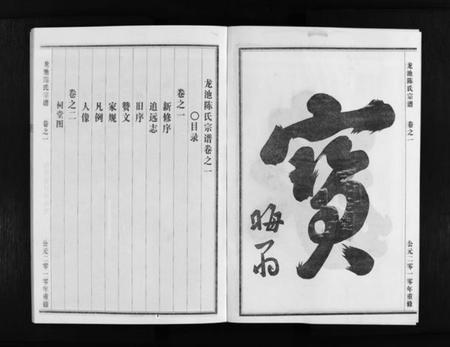 龙池陈氏宗谱
卷之一
公元二零一零年重修
寳
晦翁
龙池陈氏宗谱卷之一
〇目录
卷之一
新修序
追远志
旧序
赞文
家规
凡例
人像
卷之二
祠堂图
龙池陈氏宗谱
卷之一
公元二零一零年重修